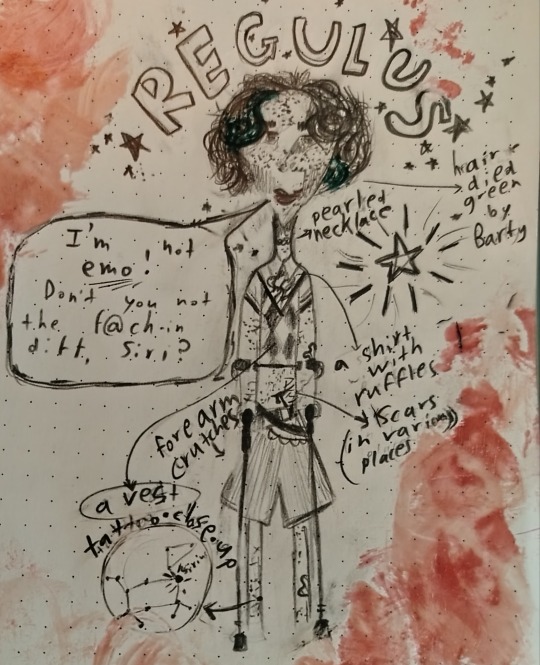 REGULUS
hair
died
green
by
Barty
pearled
necklace
I'm not
emo!
Don't you not
the f@ch-in
diff, Siri?
a shirt
with
ruffles
scars
(in various
places)
forearm
crutches
a vest
tattoo close up